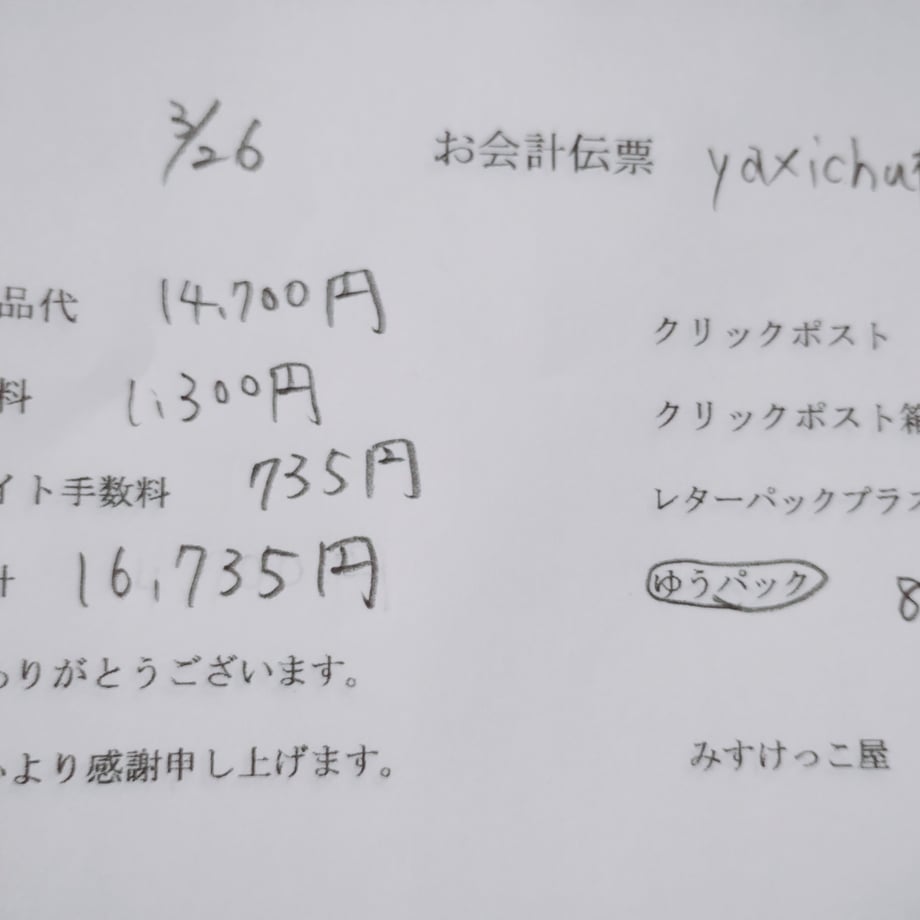 3/26 お会計伝票 yaxichu
品代 14,700円
料 1,300円
イト手数料 735円
16,735円
りがとうございます。
より感謝申し上げます。
クリックポスト
クリックポスト箱
レターパックプラス
ゆうパック 8
みすけっこ屋